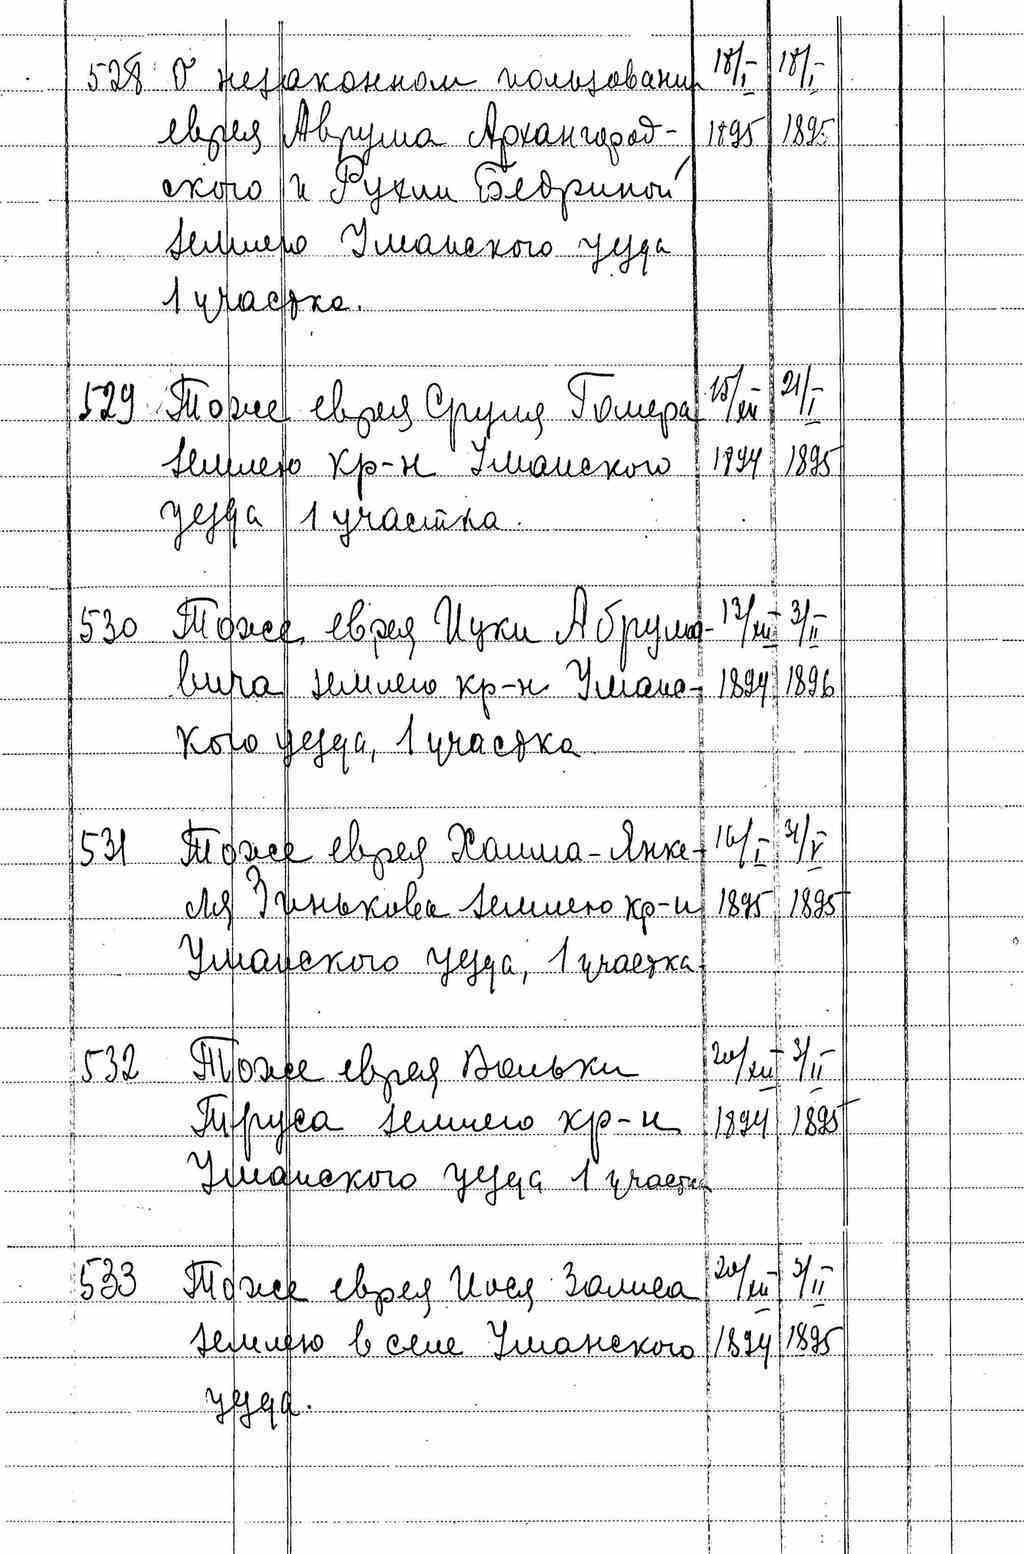 528 О незаконном пользовании 18/I 18/I
еврея Аврума Архангород- 1895 1895
ского и Рухли Бедриной
землею Уманского уезда
1 участка.
529 Тоже еврея Сруля Гомера 15/XII 21/I
землею кр-н Уманского 1894 1895
уезда 1 участка.
530 Тоже еврея Ицки Абрумо- 13/XII 3/II
вича землею кр-н Уманс- 1894 1896
кого уезда, 1 участка
531 Тоже еврея Хаима-Янке- 16/I /V
ля Зинькова землею кр-н 1895 1895
Уманского уезда, 1 участка.
532 Тоже еврея Вольки 20/XII 3/II
Труса землею кр-н 1894 1895
Уманского уезда 1 участка
533 Тоже еврея Иося Залиса 20/XII 3/II
землею в селе Уманского 1894 1895
уезда.